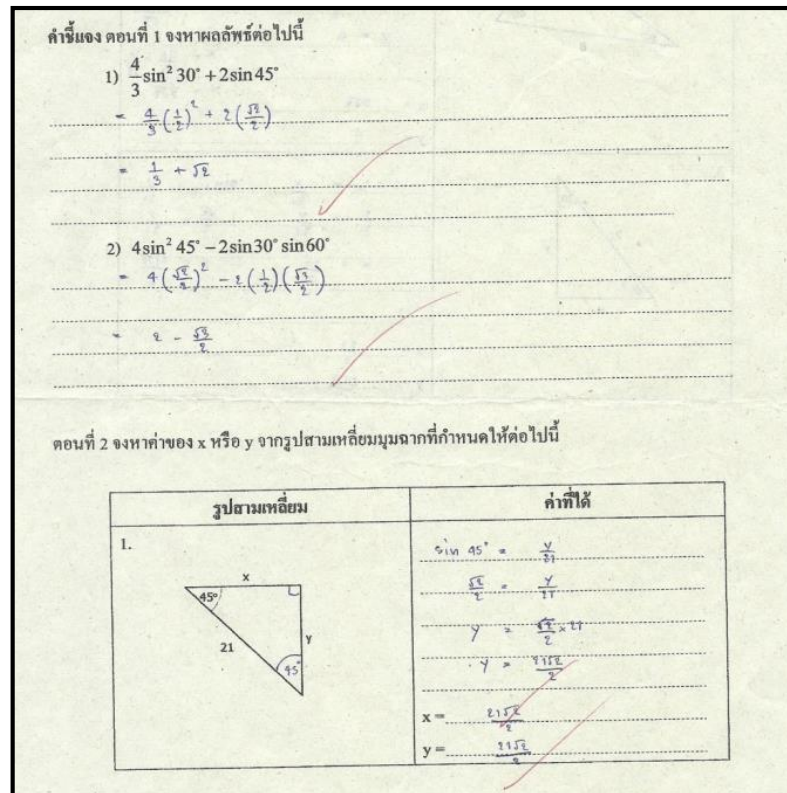 คำชี้แจง ตอนที่ 1 จงหาผลลัพธ์ต่อไปนี้
1) 4/3 sin² 30° + 2sin 45°
= 4/3 (1/2)² + 2(√2/2)
= 1/3 + √2
2) 4sin² 45° − 2sin30° sin60°
= 4(√2/2)² − 2(1/2)(√3/2)
= 2 − √3/2
ตอนที่ 2 จงหาค่าของ x หรือ y จากรูปสามเหลี่ยมมุมฉากที่กำหนดให้ต่อไปนี้
รูปสามเหลี่ยม
ค่าที่ได้
1.
x
45°
21
y
45°
sin 45° = y/21
√2/2 = y/21
y = √2/2 × 21
y = 21√2/2
x = 21√2/2
y = 21√2/2